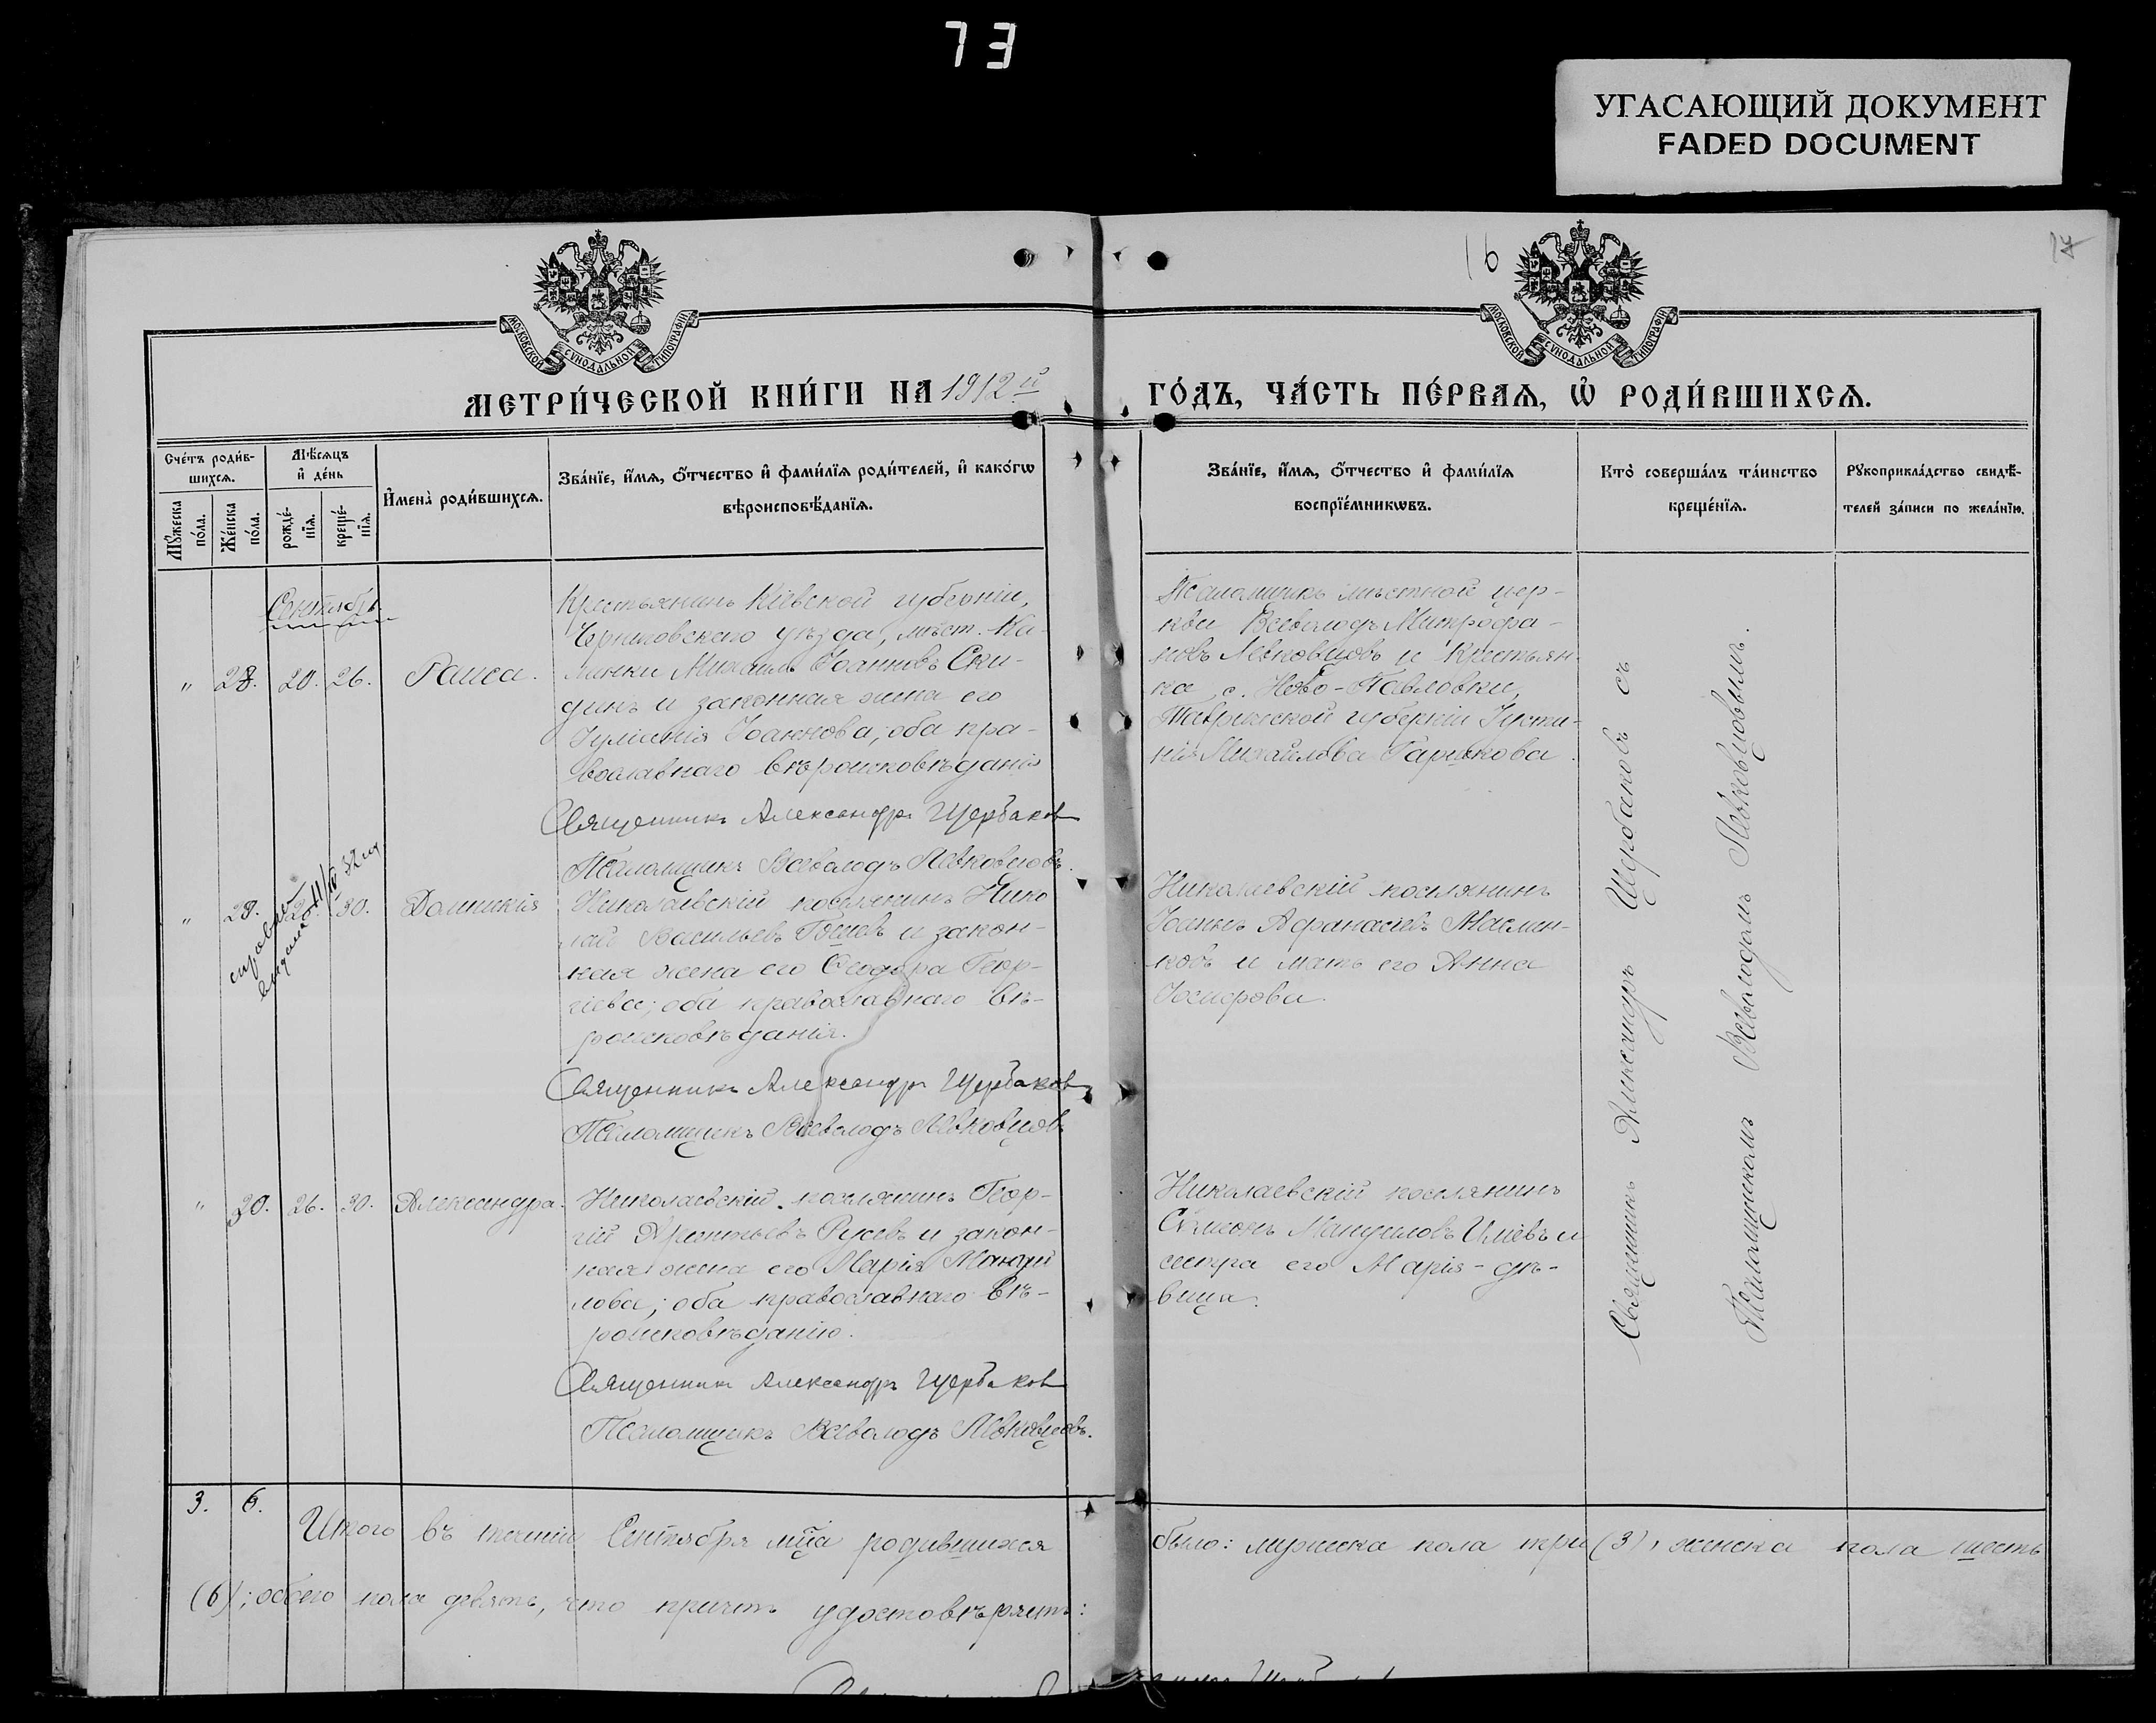 73
УГАСАЮЩИЙ ДОКУМЕНТ
FADED DOCUMENT
16
17
МОСКОВСКОЙ СѴНОДАЛЬНОЙ ТИПОГРАФІИ
МОСКОВСКОЙ СѴНОДАЛЬНОЙ ТИПОГРАФІИ
МЕТРИ́ЧЕСКОЙ КНИ́ГИ НА 1912й ГО́ДЪ, ЧА́СТЬ ПЕ́РВАѦ, Ѡ҆ РОДИ́ВШИХСѦ.
Сче́тъ роди́вшихсѧ.
Мꙋ́жеска по́ла.
Же́нска по́ла.
Мѣ́сѧцъ и҆ де́нь
рожде́нїѧ.
креще́нїѧ.
И҆мена̀ роди́вшихсѧ.
Зва́нїе, и҆́мѧ, ѻ҆́тчество и҆ фами́лїѧ роди́телей, и҆ како́гѡ
вѣроисповѣ́данїѧ.
Зва́нїе, и҆́мѧ, ѻ҆́тчество и҆ фами́лїѧ
воспрїе́мникѡвъ.
Кто̀ соверша́лъ та́инство
креще́нїѧ.
Рꙋкоприкла́дство свидѣ́-
телей за́писи по жела́нїю.
Сентябрь
" 28. 20. 26. Раиса.
Крестьянинъ Кіевской губерніи,
уѣзда, мѣст. Ка-
менки Михаилъ Іоанновъ Ски-
динъ и законная жена его
Іуліанія Іоаннова; оба пра-
вославнаго вѣроисповѣданія
Священникъ Александръ Щербаковъ
Псаломщикъ Всеволодъ Левковцовъ.
Псаломщикъ мѣстной цер-
кви Всеволодъ Митрофа-
новъ Левковцовъ и крестьян-
ка с. Ново-Павловки,
Таврической губерніи Іусти-
нія Михайлова Гаршкова.
справка выдана
" 29. 26. 30. Домникія
Николаевскій поселянинъ Нико
лай Васильевъ и закон-
ная жена его Ѳеодора Геор-
гіева; оба православнаго вѣ-
роисповѣданія.
Священникъ Александръ Щербаковъ
Псаломщикъ Всеволодъ Левковцовъ
Николаевскій поселянинъ
Іоаннъ Афанасіевъ Маслин-
ковъ и мать его Анна
Іосифова.
" 30. 26. 30. Александра.
Николаевскій поселянинъ Геор-
гій Арсентьевъ Русевъ и закон-
ная жена его Марія Мануй
лова; оба православнаго вѣ-
роисповѣданія.
Священникъ Александръ Щербаковъ
Псаломщикъ Всеволодъ Левковцовъ.
Николаевскій поселянинъ
Симеонъ Мануиловъ Иліевъ и
сестра его Марія - дѣ-
вица.
Священникъ Александръ Щербаковъ съ
Псаломщикомъ Всеволодомъ Левковцовымъ.
3. 6.
Итого въ теченіи Сентября мца родившихся было: мужеска пола три (3), женска пола шесть
(6); обоего пола девять, что причтъ удостовѣряетъ: